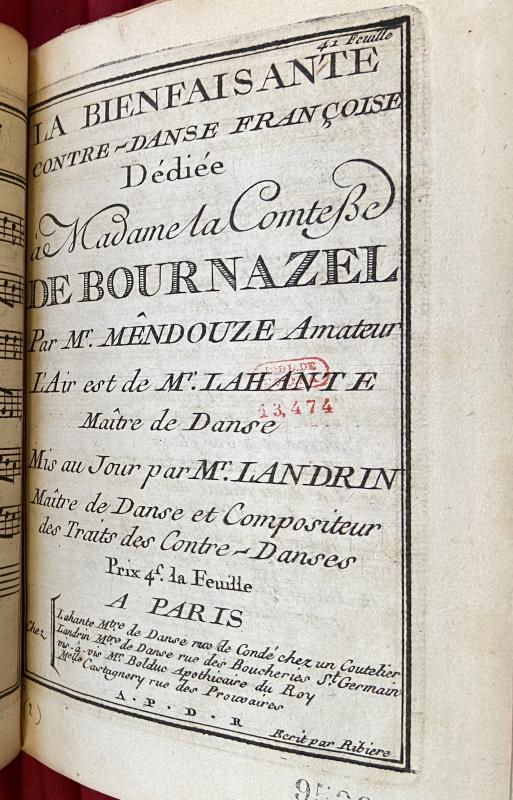 41 Feuille
LA BIENFAISANTE
CONTRE-DANSE FRANÇOISE
Dédiée
à Madame la Comteſse
DE BOURNAZEL
Par Mr. MÊNDOUZE Amateur
L'Air est de Mr. LAHANTE
13,474
Maître de Danse
Mis au Jour par Mr. LANDRIN
Maître de Danse et Compositeur
des Traits des Contre-Danses
Prix 4f. la Feuille
A PARIS
Chez
Lahante Mtre de Danse rue de Condé chez un Coutelier
Landrin Mtre de Danse rue des Boucheries St. Germain
vis-à-vis Mr. Bolduc Apothicaire du Roy
Melle Castagnery rue des Prouvaires
A.P.D.R
Ecrit par Ribiere
(2)